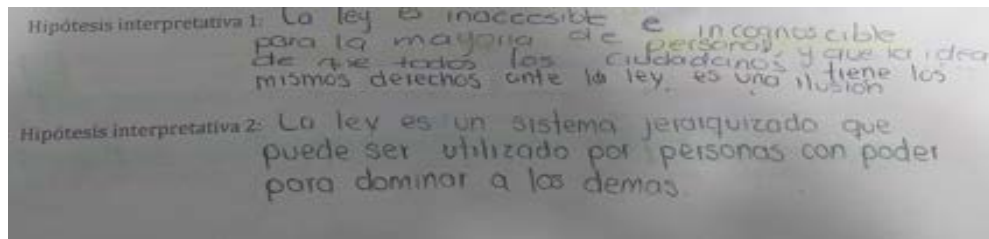 Hipótesis interpretativa 1: La ley es inaccesible e incognoscible
para la mayoria de personas, y que la idea
de que todos los ciudadanos tiene los
mismos derechos ante la ley, es una ilusión
Hipótesis interpretativa 2: La ley es un sistema jerarquizado que
puede ser utilizado por personas con poder
para dominar a los demas.